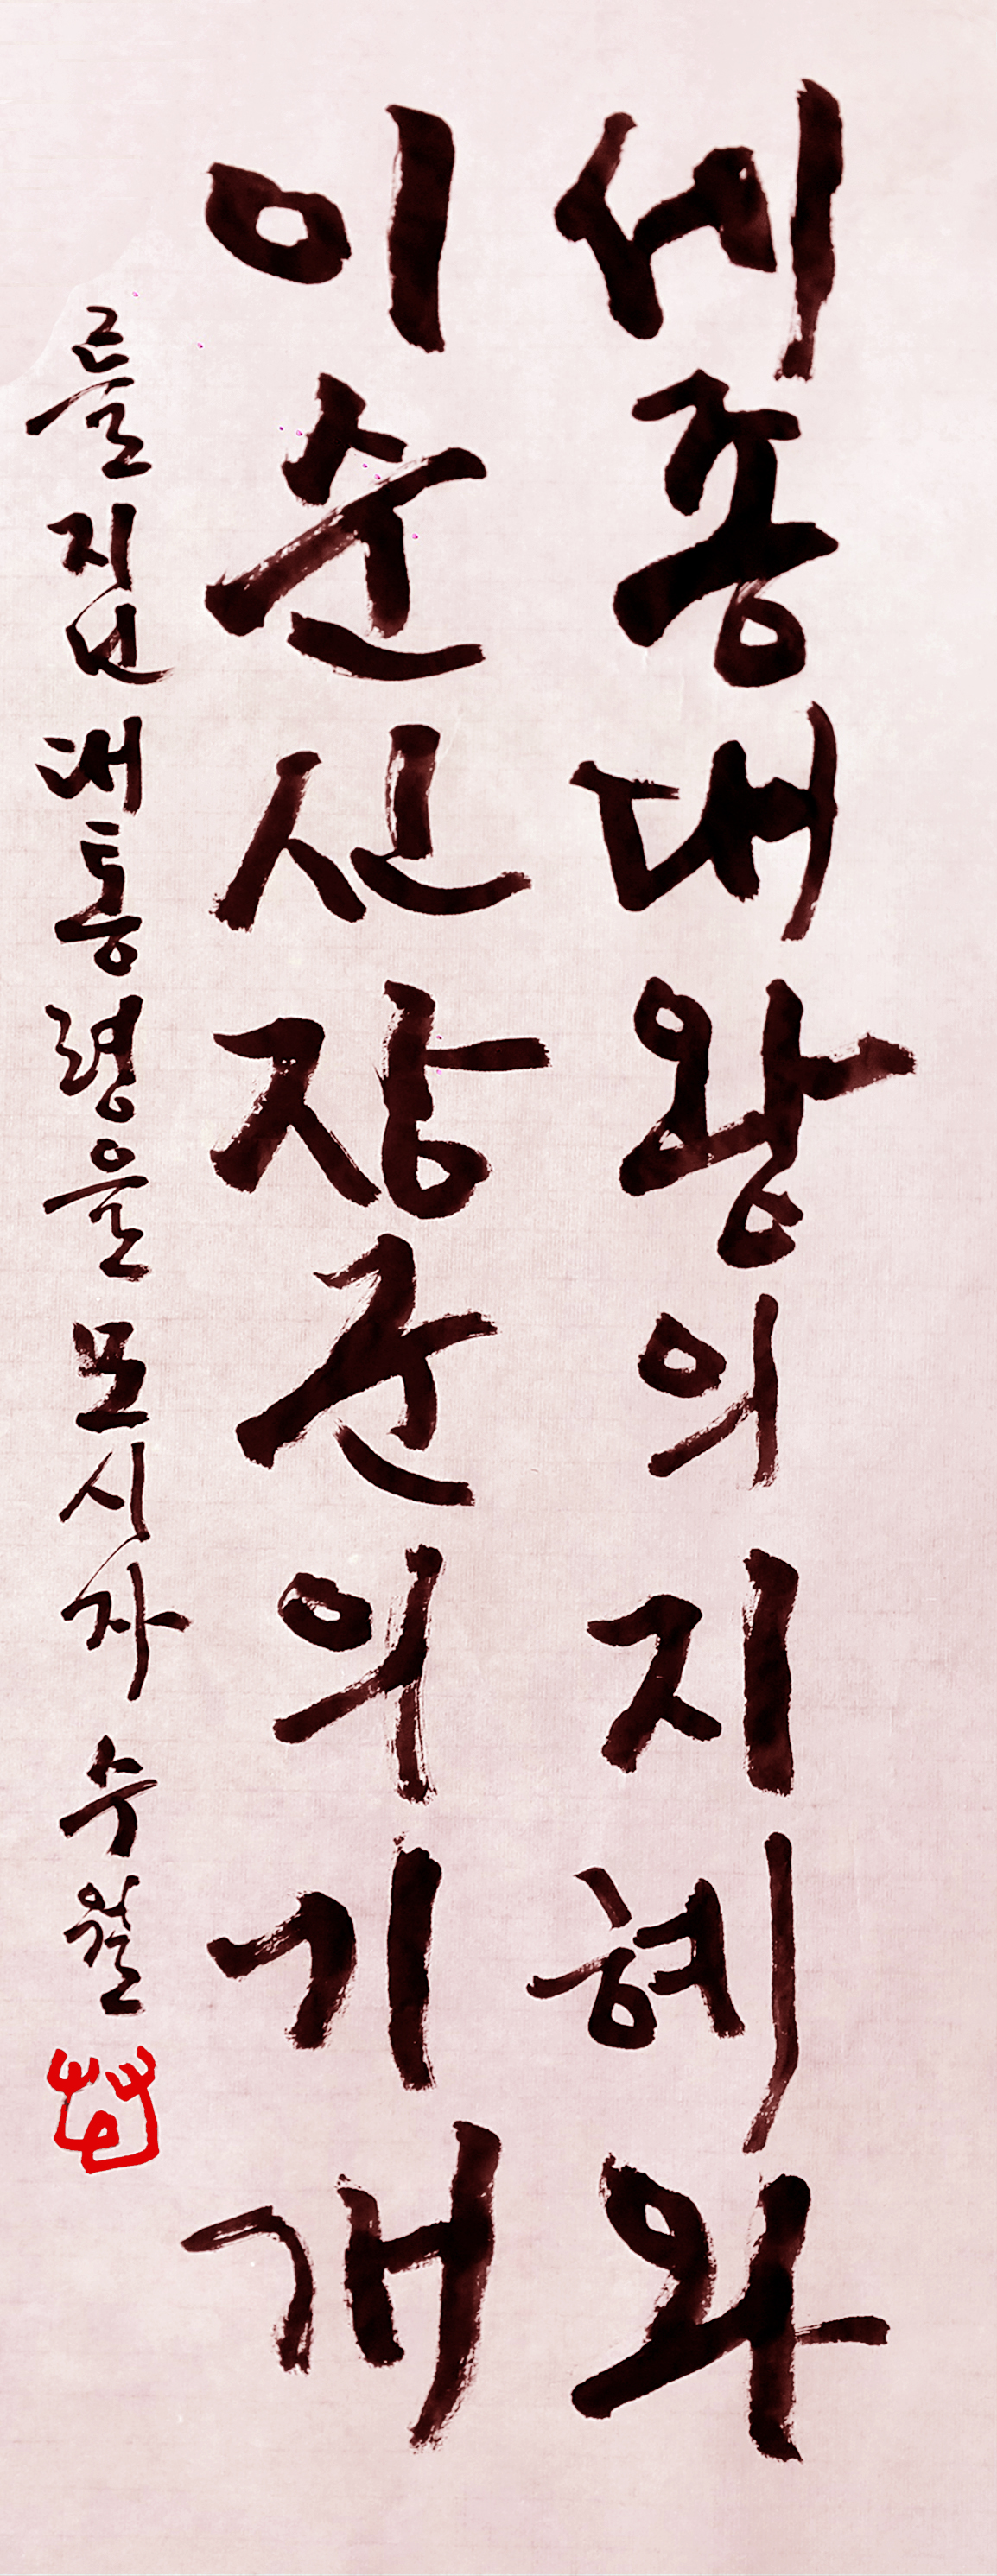 세종대왕의 지혜와
이순신 장군의 기개
를 지닌 대통령을 모시자 수월